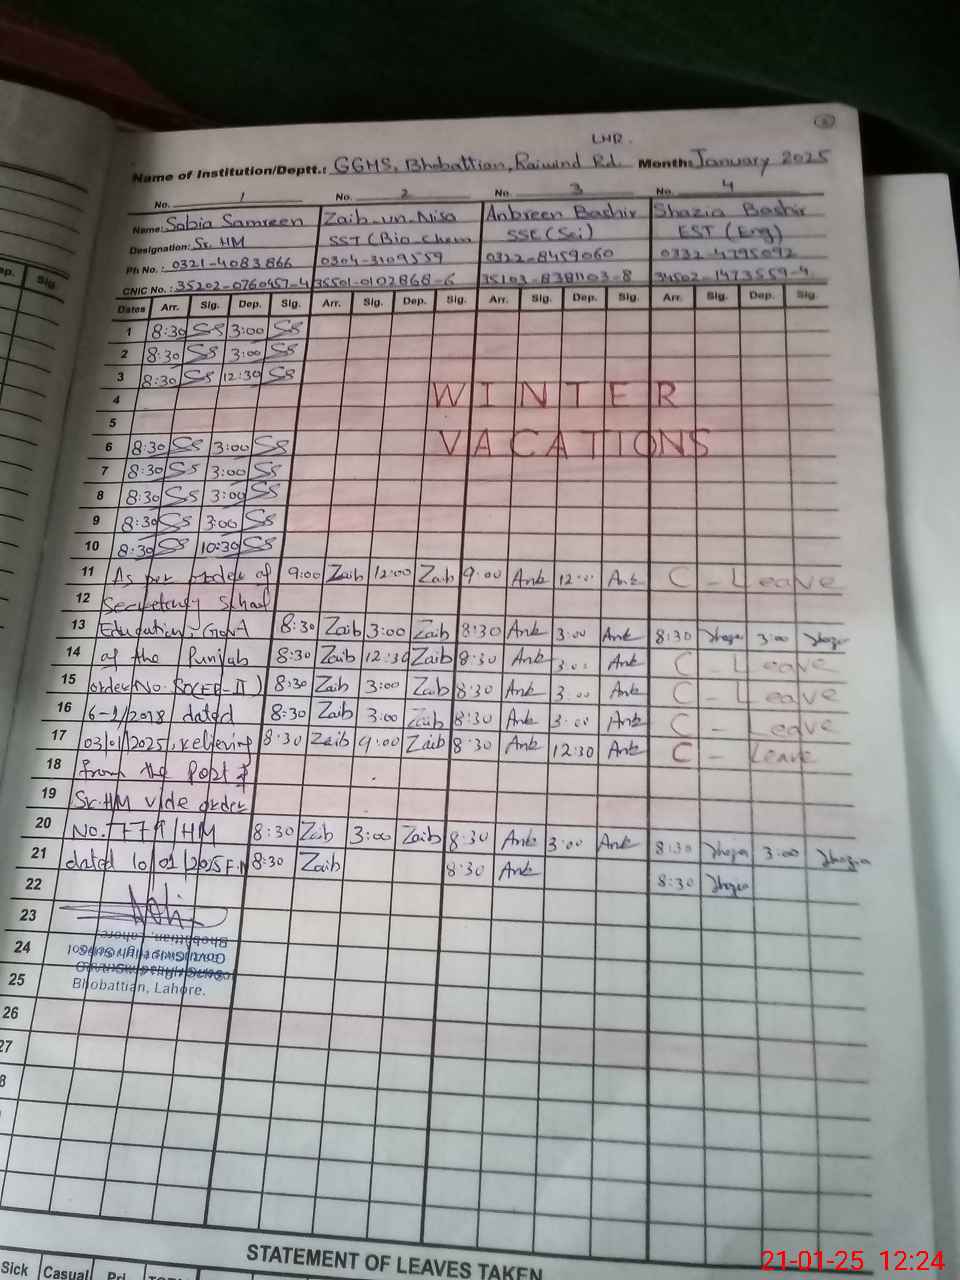 LHR.
Name of Institution/Deptt.: GGHS, Bhobattian, Raiwind Rd. Month: January 2025
No. 1 No. 2 No. 3 No. 4
Name: Sobia Samreen Zaib-un-Nisa Anbreen Bashir Shazia Bashir
Designation: Sr. HM SST (Bio-Chem SSE (Sci) EST (Eng)
Ph No.: 0321-4083866 0304-3109559 0322-8459060 0332-4795092
CNIC No.: 35202-0760457-4 35501-0102868-6 35103-8381103-8 34502-1473559-4
Dates Arr. Sig. Dep. Sig. Arr. Sig. Dep. Sig. Arr. Sig. Dep. Sig. Arr. Sig. Dep. Sig.
1 8:30 SS 3:00 SS
2 8:30 SS 3:00 SS
3 8:30 SS 12:30 SS
4 WINTER
5
6 8:30 SS 3:00 SS VACATIONS
7 8:30 SS 3:00 SS
8 8:30 SS 3:00 SS
9 8:30 SS 3:00 SS
10 8:30 SS 10:30 SS
11 As per orders of 9:00 Zaib 12:00 Zaib 9:00 Anb 12:00 Anb C - Leave
12 Secretary School
13 Education, Govt 8:30 Zaib 3:00 Zaib 8:30 Anb 3:00 Anb 8:30 Shazia 3:00 Shazia
14 of the Punjab 8:30 Zaib 12:30 Zaib 8:30 Anb 3:00 Anb C - Leave
15 order No. SO(EB-II) 8:30 Zaib 3:00 Zaib 8:30 Anb 3:00 Anb C - Leave
16 6-1/2018 dated 8:30 Zaib 3:00 Zaib 8:30 Anb 3:00 Anb C - Leave
17 03/01/2025, relieving 8:30 Zaib 9:00 Zaib 8:30 Anb 12:30 Anb C - Leave
18 from the Post of
19 Sr.HM vide order
20 No. 7771/HM 8:30 Zaib 3:00 Zaib 8:30 Anb 3:00 Anb 8:30 Shazia 3:00 Shazia
21 dated 10/01/2025 F.N 8:30 Zaib 8:30 Anb 8:30 Shazia
22
23
24
25 Bhobattian, Lahore.
26
27
8
STATEMENT OF LEAVES TAKEN
Sick Casual Pri
21-01-25 12:24